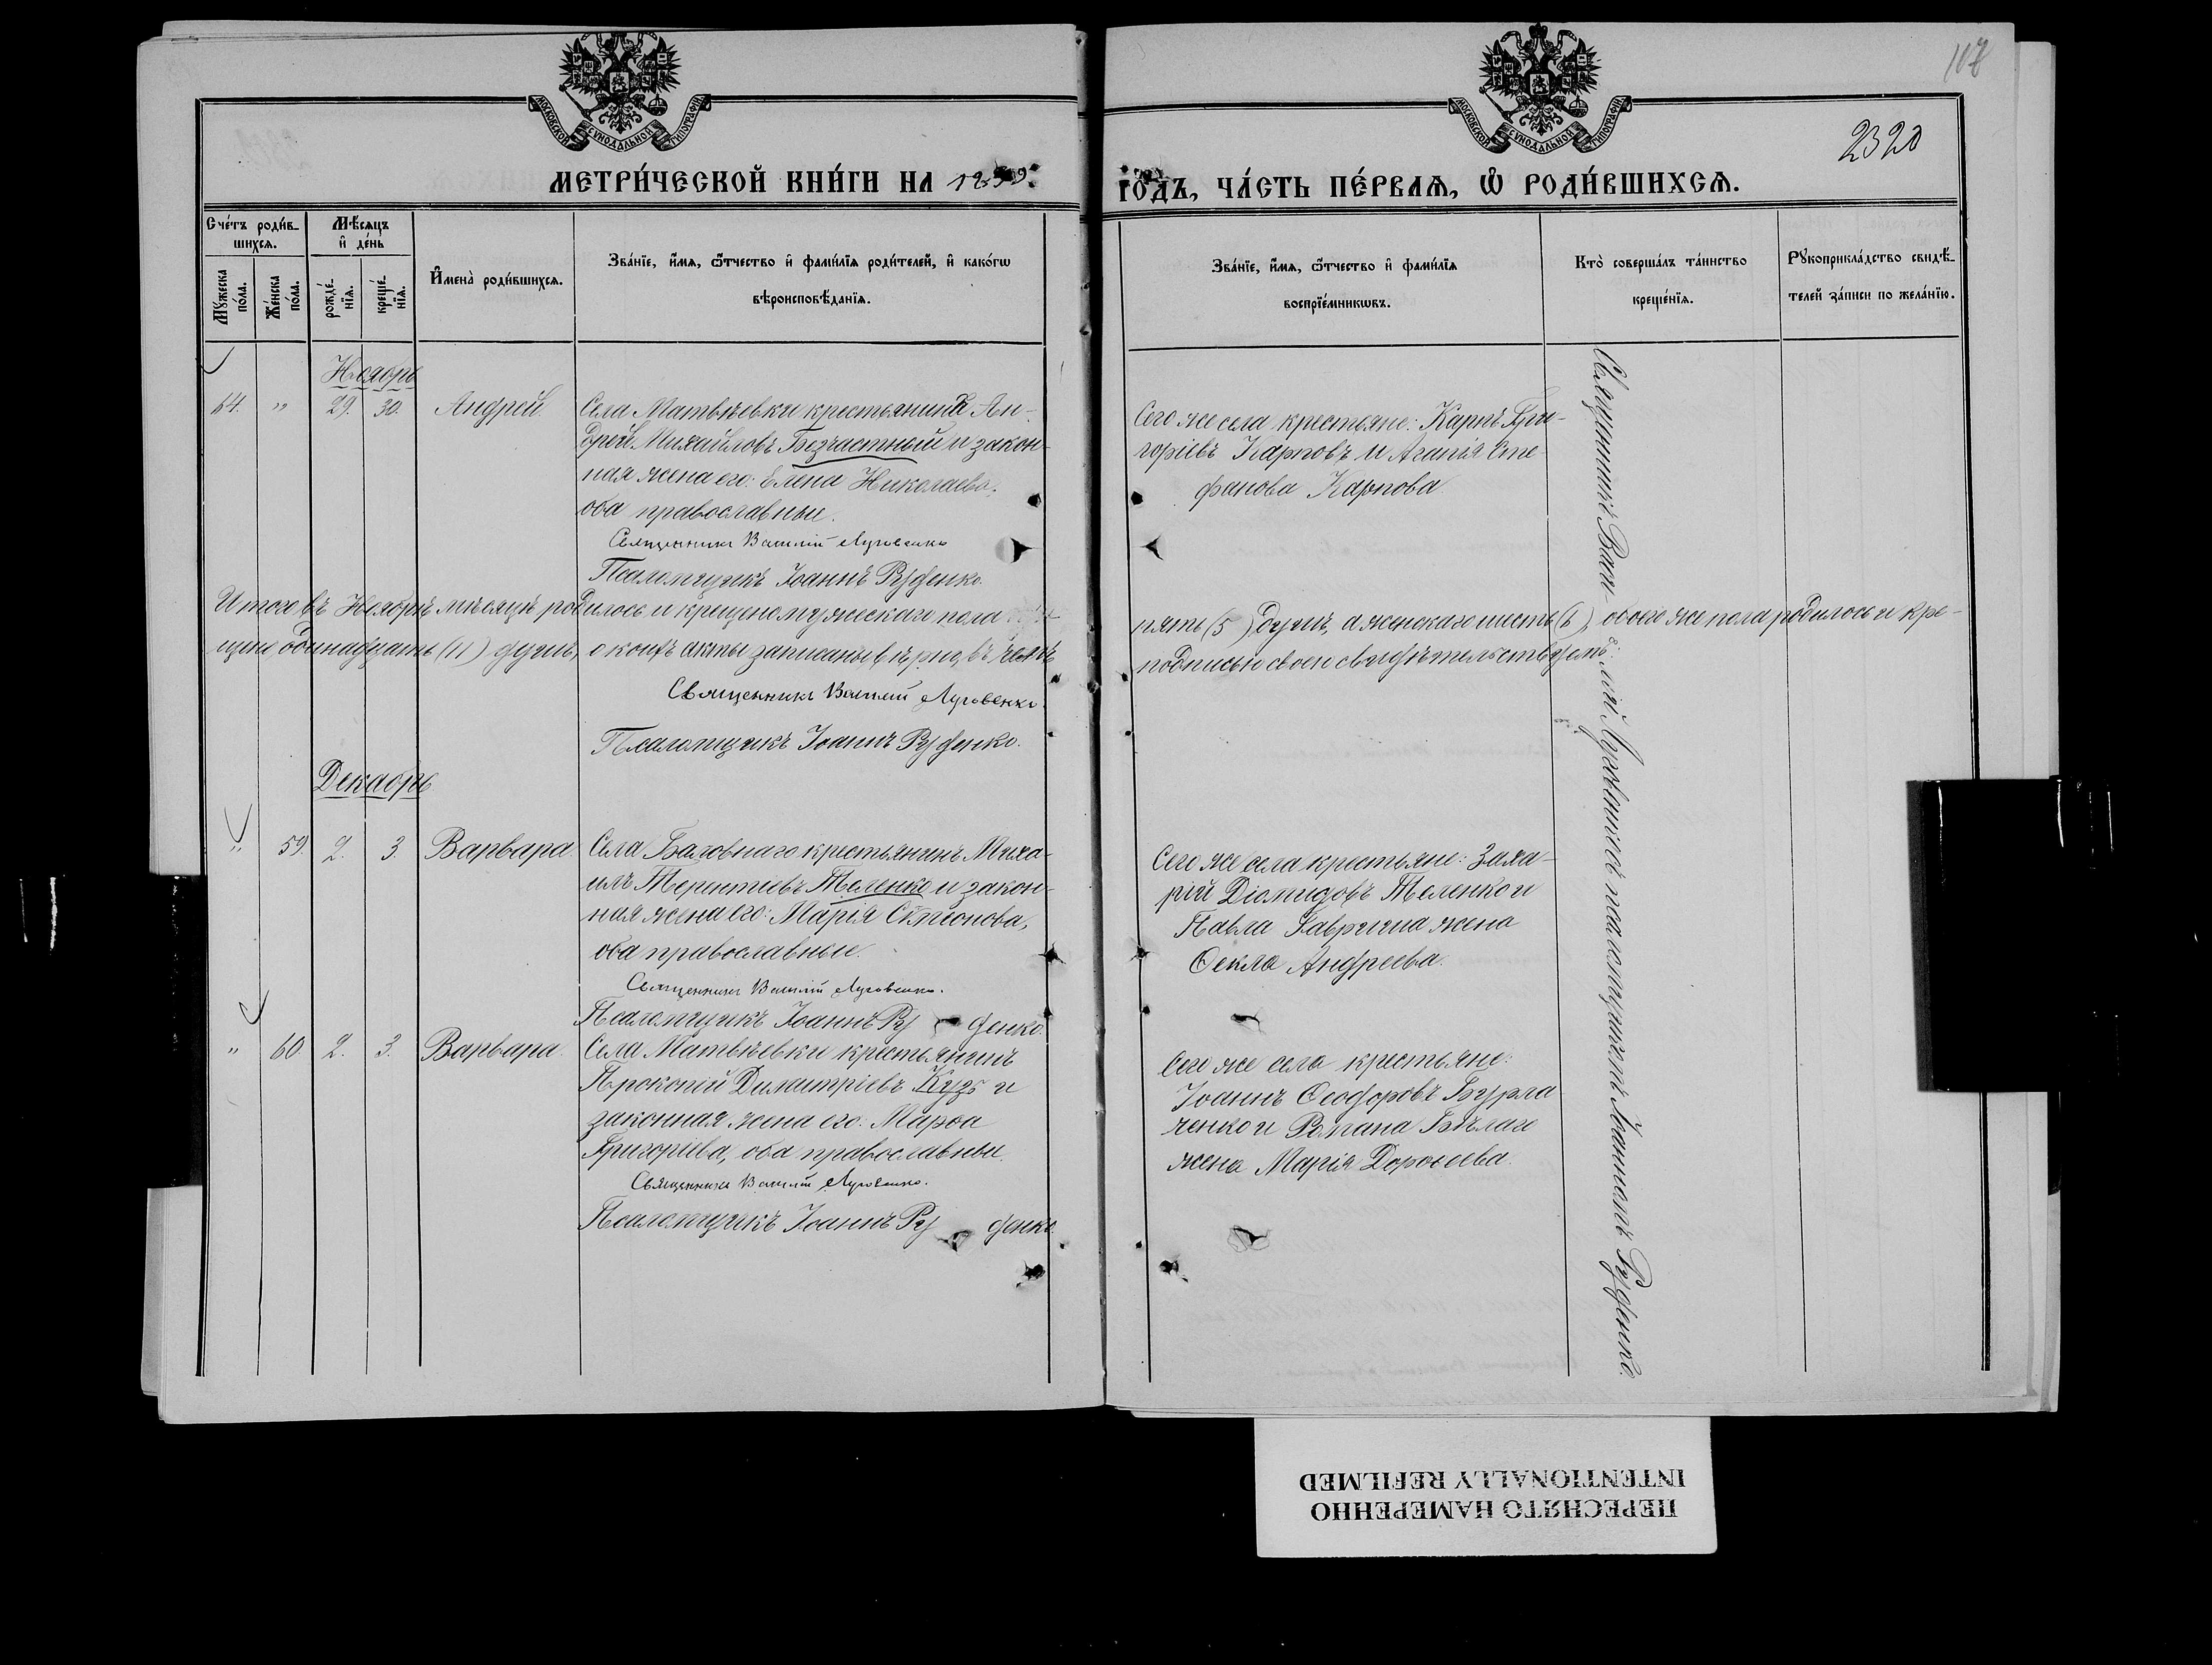 107
2320
МОСКОВСКОЙ СѴНОДАЛЬНОЙ ТИПОГРАФІИ
МОСКОВСКОЙ СѴНОДАЛЬНОЙ ТИПОГРАФІИ
МЕТРИ́ЧЕСКОЙ КНИ́ГИ НА 1899
ГО́ДЪ, ЧА́СТЬ ПЕ́РВАѦ, Ѽ РОДИ́ВШИХСѦ.
Сче́тъ роди́в-
шихсѧ.
Мѣ́сѧцъ
и҆ де́нь
Мꙋ́жеска
по́ла.
Же́нска
по́ла.
рожде́-
нїѧ.
креще́-
нїѧ.
И҆мена̀ роди́вшихсѧ.
Зва́нїе, и҆́мѧ, ѻ҆́тчество и҆ фами́лїѧ роди́телей, и҆ како́гѡ
вѣроисповѣ́данїѧ.
Зва́нїе, и҆́мѧ, ѻ҆́тчество и҆ фами́лїѧ
воспрїе́мникѡвъ.
Кто̀ соверша́лъ та́инство
креще́нїѧ.
Рꙋкоприкла́дство свидѣ́-
телей за́писи по жела́нїю.
Ноябрь
64. " 29. 30. Андрей
Села Матвѣевки крестьянинъ Ан-
дрей Михайловъ Безчастный и закон-
ная жена его: Елена Николаева,
оба православные.
Священникъ Василій Луговенко
Псаломщикъ Іоаннъ Руденко.
Сего же села крестьяне: Карпъ Гри-
горіевъ Карповъ и Агапія Сте-
фанова Карпова
Итого въ Ноябрѣ мѣсяцѣ родилось и крещено мужескаго пола
пять (5) душъ, а женскаго шесть (6), обоего же пола родилось и кре-
щено одинадцать (11) душъ, о коихъ акты записаны вѣрно, въ чемъ
подписью своею свидѣтельствуемъ:
Священникъ Василій Луговенко.
Псаломщикъ Іоаннъ Руденко.
Декабрь
" 59. 2. 3. Варвара
Села Баловнаго крестьянинъ Миха-
илъ Терентіевъ Теленко и закон-
ная жена его: Марія Симеонова,
оба православные.
Священникъ Василій Луговенко.
Псаломщикъ Іоаннъ Руденко.
Сего же села крестьяне: Заха-
рій Діомидовъ Теленко и
Павла Гавриша жена
Ѳекла Андреева.
" 60. 2. 3. Варвара.
Села Матвѣевки крестьянинъ
Прокопій Димитріевъ Кузь и
законная жена его: Марѳа
Григоріева, оба православные.
Священникъ Василій Луговенко.
Псаломщикъ Іоаннъ Руденко.
Сего же села крестьяне:
Іоаннъ Ѳеодоровъ Бурла
ченко и Романа Бѣлаго
жена Марія Дороѳеева.
Священникъ Васи-
лій Луговенко съ псаломщикомъ Іоанномъ Руденко.
ПЕРЕСНЯТО НАМЕРЕННО
INTENTIONALLY REFILMED